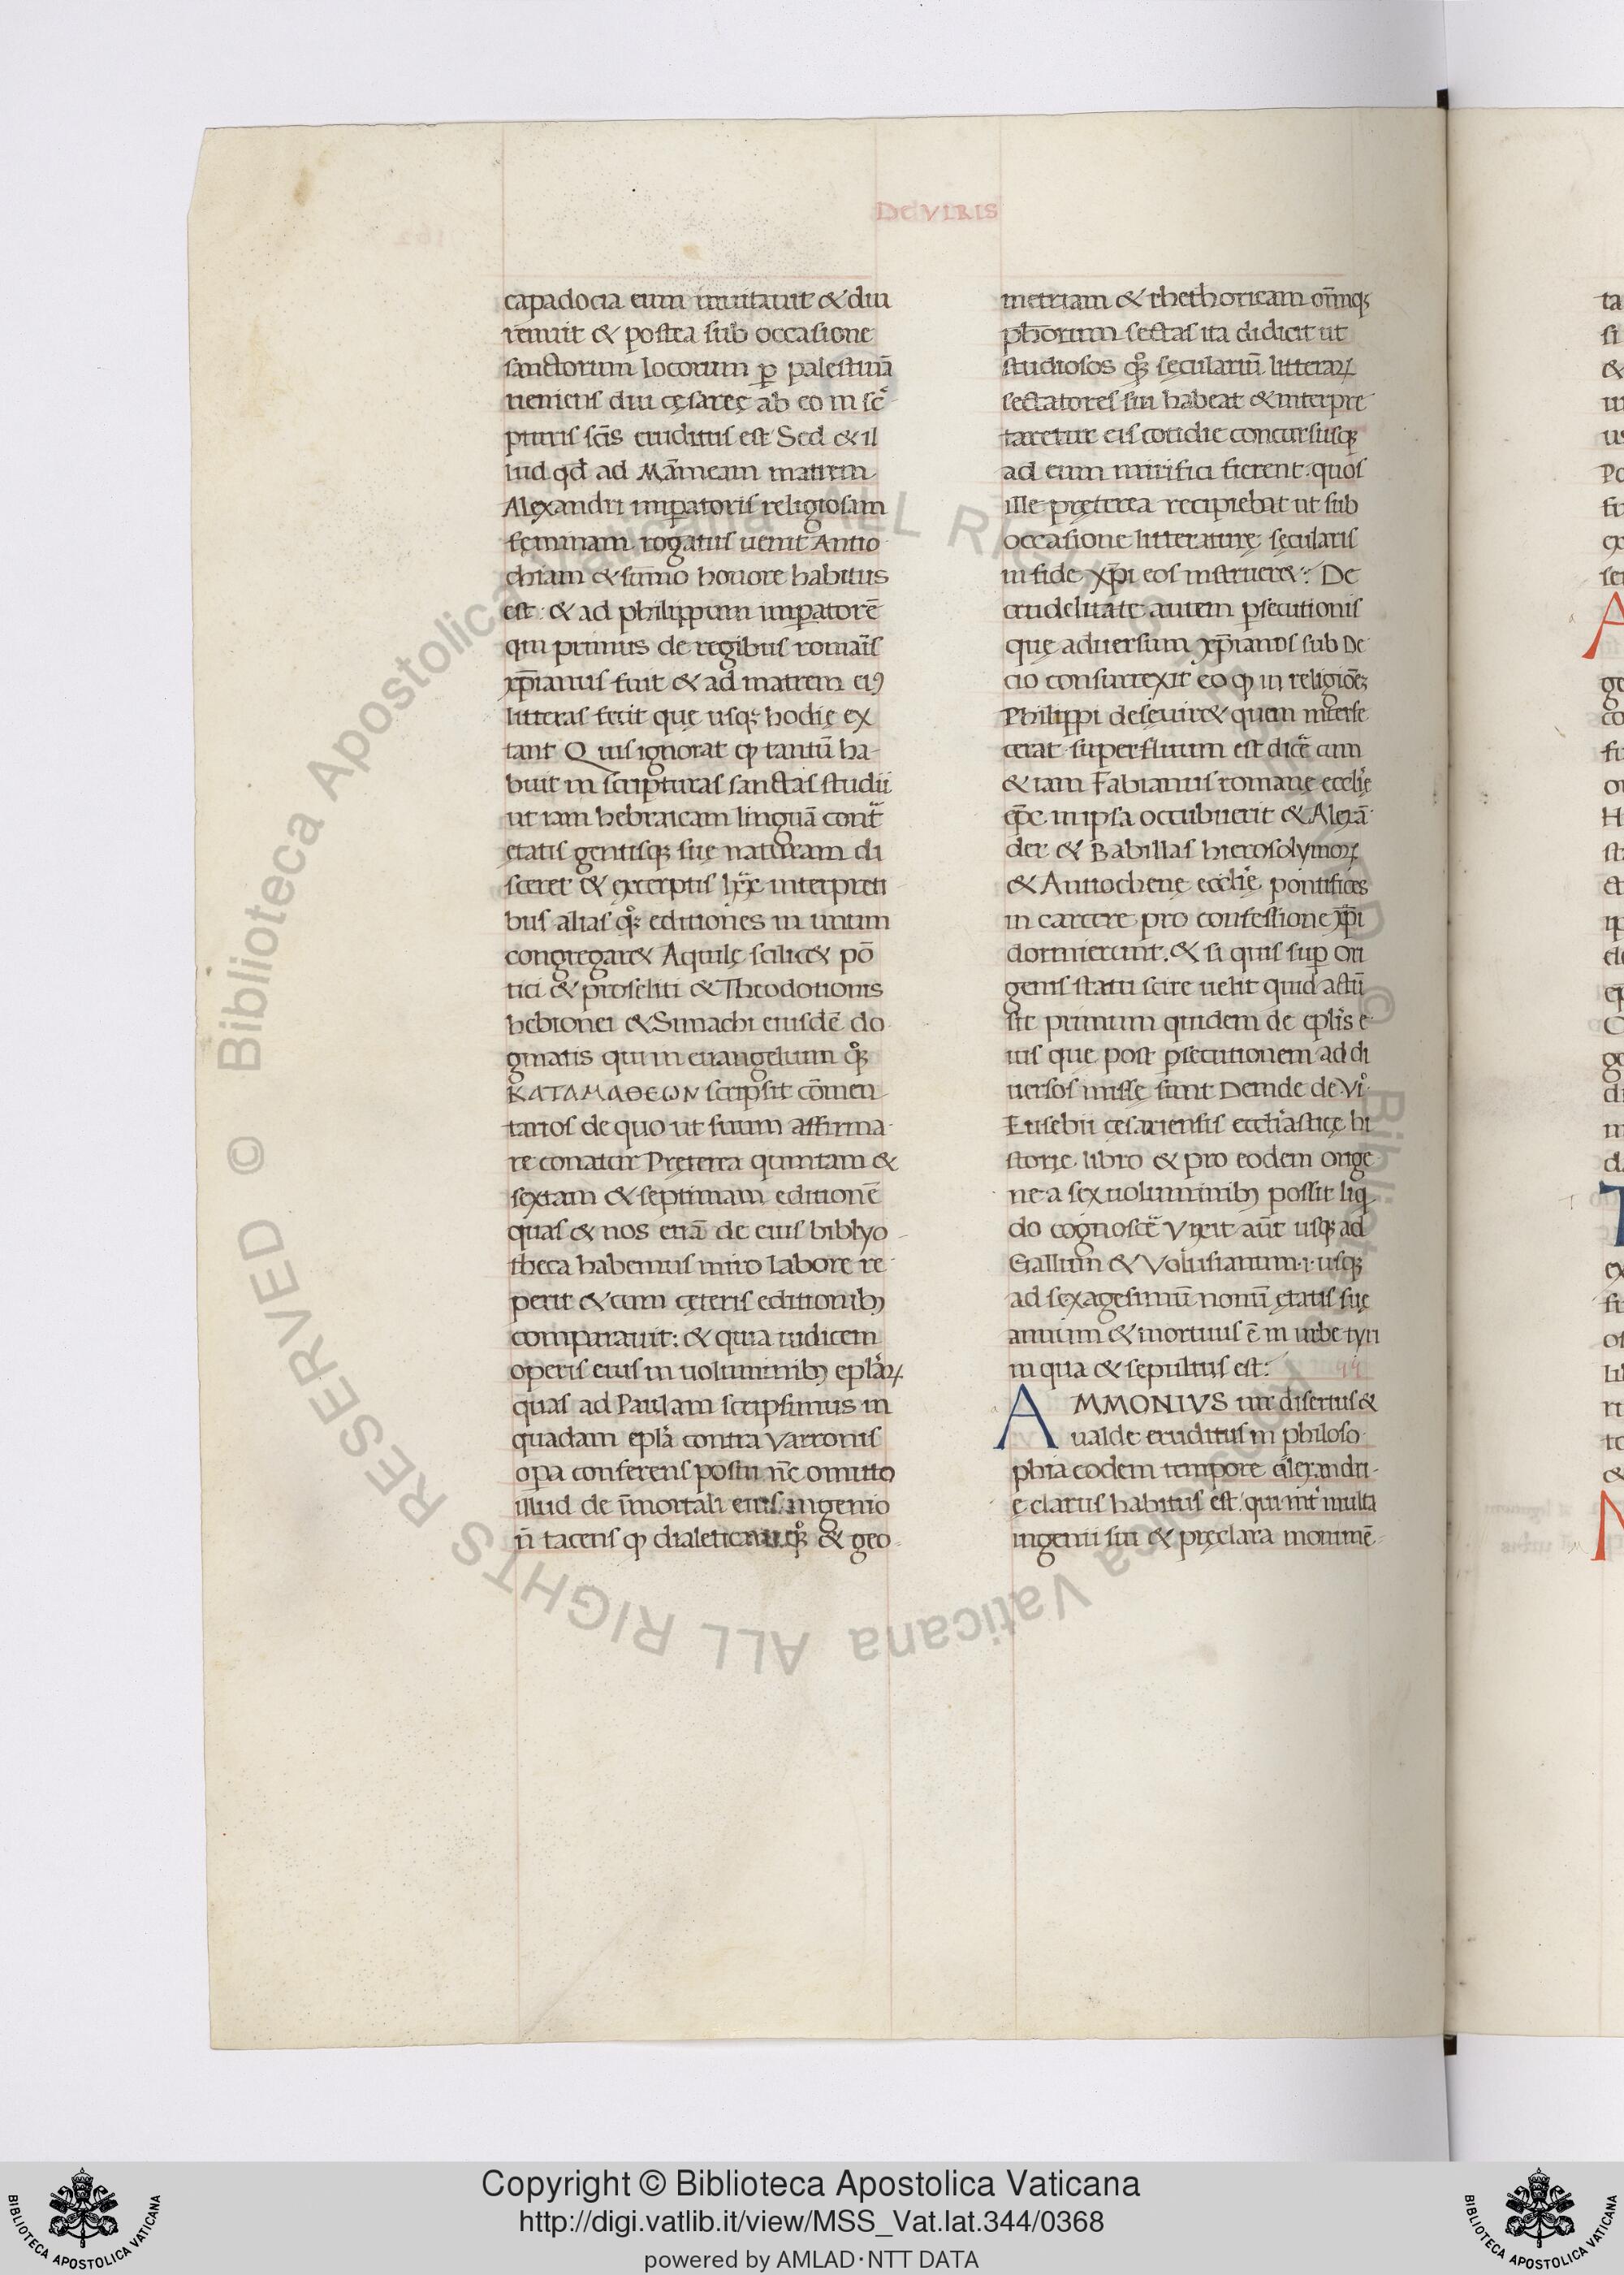 De VIRIS
capadocia eum inuitauit & diu
tenuit & postea sub occasione
sanctorum locorum ꝑ palestinā
ueniens diu cęsareę ab eo in sc̾
pturis sc̄is eruditus est Sed & il
lud qd̄ ad Mām̄eam matrem
Alexandri imꝑatoris religiosam
feminam rogatus uenit Antio
chiam & sūmo honore habitus
est· & ad philippum imꝑatorē
qui primus de regibus romāis
xp̄ianus fuit & ad matrem eiꝰ
litteras fecit quę usqꝫ hodię ex
tant Quis ignorat ꝙ tantū ha-
buit in scripturas sanctas studii
ut iam hebraicam linguā cont̄
etatis gentisqꝫ suę naturam di
sceret & exceptis lxx interpreti
bus alias qꝫ editiones in unum
congregar& Aquilę scilic& pō
tici & proseliti & Theodotionis
hebionei & Simachi eiusdē do
gmatis qui in euangelium qꝫ
ΚΑΤΑΜΑΘΕωΝ scripsit cōmen
tarios de quo ut suum affirma-
re conatur Pręterea quintam &
sextam & septimam editionē
quas & nos etiā de eius biblyo-
theca habemus miro labore re
perit & cum cęteris editionibꝫ
comparauit: & quia iudicem
operis eius in uoluminibꝫ epl̄aꝝ
quas ad Paulam scripsimus in
quadam epl̄a contra varronis
oꝑa conferens posui n̄c omitto
illud de īmortali eius ingenio
n̄ tacens ꝙ dialeticam qꝫ & geo-
metriam & rhethoricam om̄mqꝫ
ph̄orum sectas ita didicit ut
studiosos qꝫ sęculariū litteraꝝ
sectatores sui habeat & interpre
taretur eis cotidie concursusqꝫ
ad eum mirifici fierent: quos
ille pręterea recipiebat ut sub
occasione litteraturę sęcularis
in fide xp̄i eos instruer&: De
crudelitate autem ꝑsecutionis
quę aduersum xp̄ianos sub De
cio consurrexit eo ꝙ in religiōeꝫ
Philippi deseuir& quem interfe
cerat superfluum est dicē cum
& iam Fabianus romanę eccl̄ię
ep̄c in ipsa occubuerit & Alexā
der & Babillas hierosolymoꝝ
& Antiochenę eccl̄ię pontifices
in carcere pro confessione xp̄i
dormierunt. & si quis suꝑ ori
genis statu scire uelit quid actū
sit primum quidem de epl̄is e
ius que post ꝑsecutionem ad di
uersos missę sunt Deinde de vi°
Eusebii cęsariensis eccl̄iasticę hi
storię libro & pro eodem orige
ne a sex uoluminibꝫ possit liq
do cognoscē Vixit aūt usqꝫ ad
Gallum & Volusianum·i·usqꝫ
ad sexagesimū nonū ętatis suę
annum & mortuus ē in urbe tyri
in qua & sepultus est:
AMMONIVS uir disertus &
ualde eruditus in philoso
phia eodem tempore alexandri-
ę clarus habitus est. qui int̄ multa
ingenii sui & pręclara monumē-
Copyright © Biblioteca Apostolica Vaticana
http://digi.vatlib.it/view/MSS_Vat.lat.344/0368
powered by AMLAD·NTT DATA
BIBLIOTECA APOSTOLICA VATICANA
BIBLIOTECA APOSTOLICA VATICANA
© Biblioteca Apostolica Vaticana ALL RIGHTS RESERVED
© Biblioteca Apostolica Vaticana ALL RIGHTS RESERVED